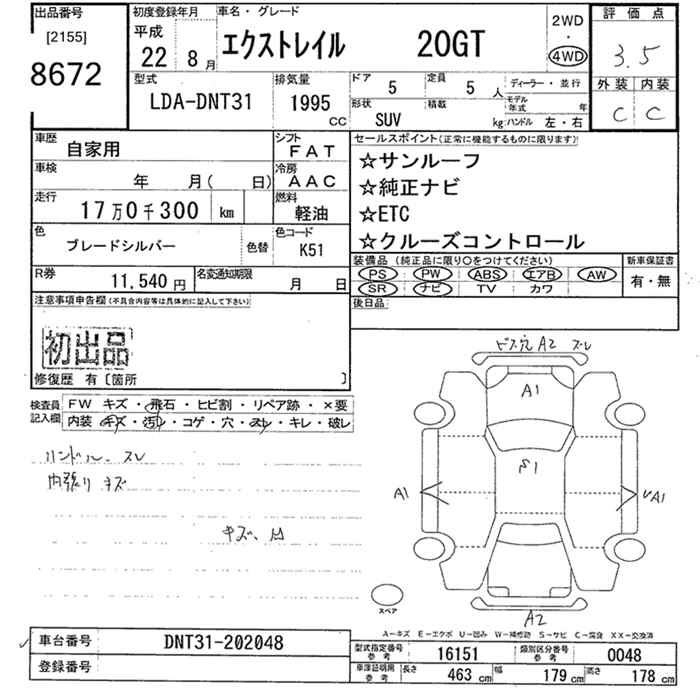 出品番号
[2155]
8672
初度登録年月
平成
22 8月
車名・グレード
エクストレイル 20GT
2WD
・
4WD
評価点
3.5
外装 内装
C C
型式
LDA-DNT31
排気量
1995 CC
ドア 5
定員 5 人
ディーラー・並行
形状 SUV
積載 kg
モデル年式 年
ハンドル 左・右
車歴 自家用
シフト FAT
車検 年 月( 日)
冷房 AAC
走行 17万0千300 km
燃料 軽油
色 ブレードシルバー
色替
色コード K51
R券 11,540円
名変通知期限 月 日
セールスポイント(正常に機能するものに限ります)
☆サンルーフ
☆純正ナビ
☆ETC
☆クルーズコントロール
装備品 (純正品に限り○をつけてください)
PS PW ABS エアB AW
SR ナビ TV カワ
新車保証書
有・無
後日品
注意事項申告欄(不具合内容等は具体的に記入して下さい)
初出品
修復歴 有〔箇所 〕
検査員記入欄
FW キズ・飛石・ヒビ割・リペア跡・×要
内装 キズ・汚レ・コゲ・穴・スレ・キレ・破レ
ハンドル スレ
内張り キズ
キズ、凹
ビス穴 A2 スレ
A1
S1
A1
A1
スペア
A2
A-キズ E-エクボ U-凹み W-補修跡 S-サビ C-腐食 XX-交換済
車台番号 DNT31-202048
登録番号
型式指定番号 参考 16151
類別区分番号 参考 0048
車庫証明用 参考 長さ 463 cm 幅 179 cm 高さ 178 cm